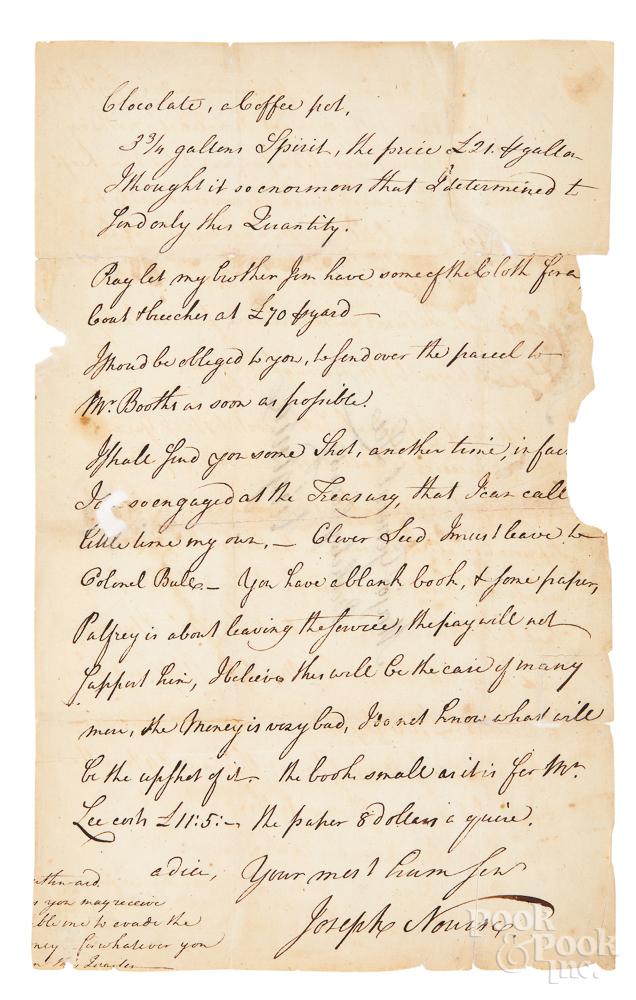 Chocolate, a Coffee pot,
3 3/4 gallons Spirit, the price £21. ⅌ gallon
I thought it so enormous that I determined to
send only this Quantity.
Pray let my brother Jim have some of the Cloth for a
Coat & breeches at £70 ⅌ yard —
I shoud be obleged to you, to send over the parcel to
Mr. Booths as soon as possible.
I shall send you some Shot, another time, in fac
I so engaged at the Treasury, that I can call
little time my own, — Clover Seed I must leave to
Colonel — You have a blank book, & some paper,
Palfrey is about leaving the Service, the pay will not
support him, I believe this will be the case of many
more, the Money is very bad, I do not know what will
be the upshot of it — the book small as it is for Mr.
Lee costs £11:5:— the paper 8 dollars a quire.
adieu, Your most hum Ser
Joseph Nourse
you may receive
ble me to evade the
ney for whatever you
Pook
& Pook
Inc.